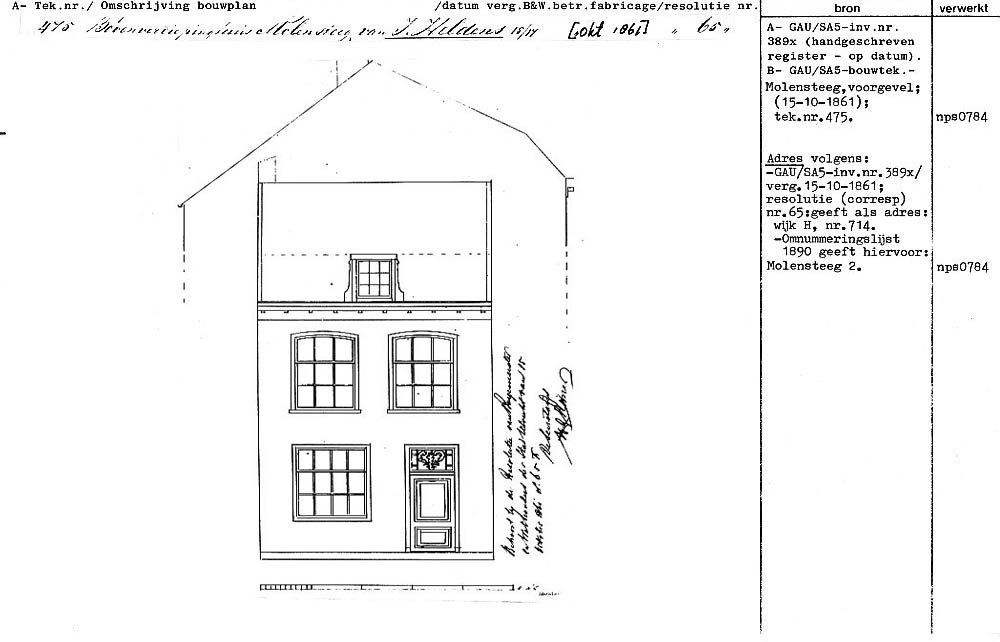 A- Tek.nr./ Omschrijving bouwplan /datum verg.B&W.betr.fabricage/resolutie nr.
475 Bovenverdieping huis Molensteeg, van J. Heldens 15/17 [okt 1861] „ 65 „
bron
verwerkt
A- GAU/SA5-inv.nr.
389x (handgeschreven
register - op datum).
B- GAU/SA5-bouwtek.-
Molensteeg,voorgevel;
(15-10-1861);
tek.nr.475.
nps0784
Adres volgens:
-GAU/SA5-inv.nr.389x/
verg.15-10-1861;
resolutie (corresp)
nr.65:geeft als adres:
wijk H, nr.714.
-Omnummeringslijst
1890 geeft hiervoor:
Molensteeg 2.
nps0784
Behoort bij de Resolutie van Burgemeester
en Wethouders der Stad Utrecht van 15
October 1861 n. 65
De Secretaris